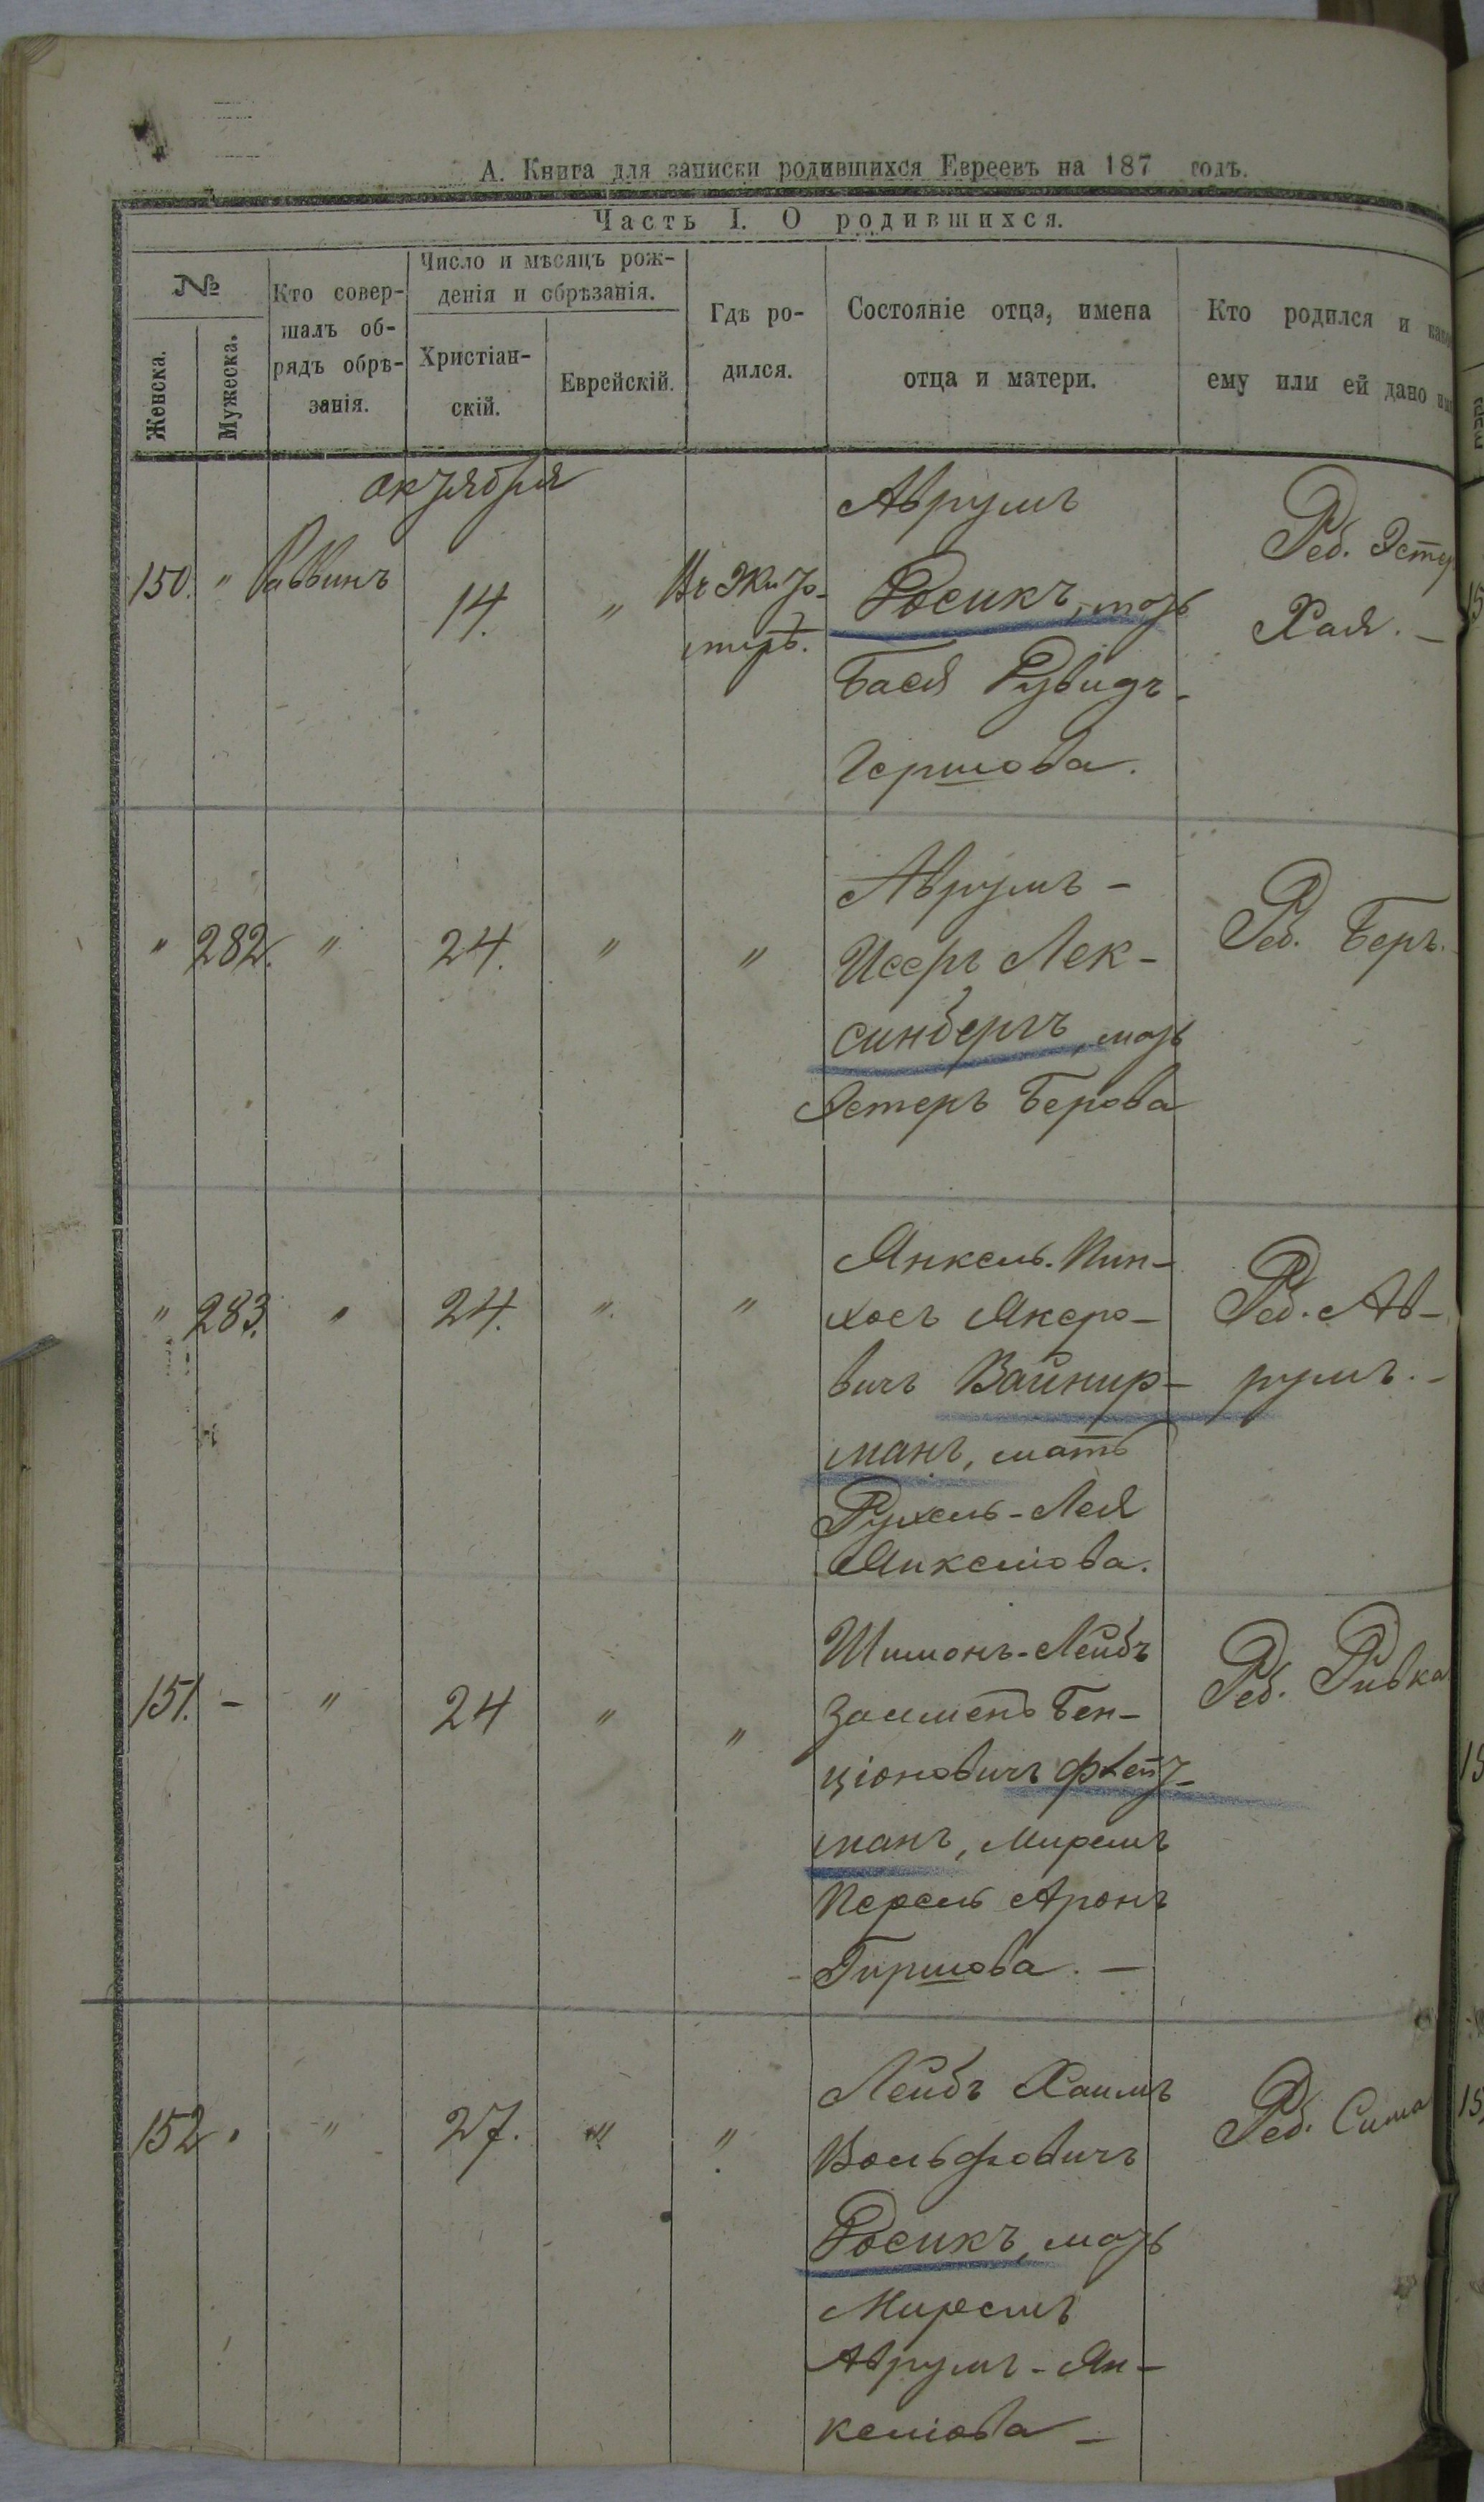 А. Книга для записки родившихся Евреевъ на 187 годъ.
Часть I. О родившихся.
№
Женска.
Мужеска.
Кто совер-
шалъ об-
рядъ обрѣ-
занія.
Число и мѣсяцъ рож-
денія и обрѣзанія.
Христіан-
скій.
Еврейскій.
Гдѣ ро-
дился.
Состояніе отца, имена
отца и матери.
Кто родился и
ему или ей дано
октября
150. " Раввинъ 14. " Въ Жито-
мирѣ.
Аврумъ
Росикъ, мать
Бася Рувидъ-
Гершова.
Реб. Эстер
Хая. —
" 282. " 24. " "
Аврумъ -
Исеръ Лек-
синбергъ, мать
Эстеръ Берова
Реб. Беръ.
" 283. " 24. " "
Янкель-Пин-
хосъ Якеро-
вичъ Вайнир-
манъ, мать
Рухель-Лея
Янкеліова.
Реб. Ав-
румъ. -
151. - " 24 " "
Шимонъ-Лейбъ
Залмень Бен-
ціоновичъ
манъ, Миремъ
Перель Аронъ
Гиршова. —
Реб. Ривка
152 " " 27. " "
Лейбъ Хаимъ
Вольфовичъ
Росикъ, мать
Миремъ
Аврумъ-Ян-
келіова —
Реб. Сима